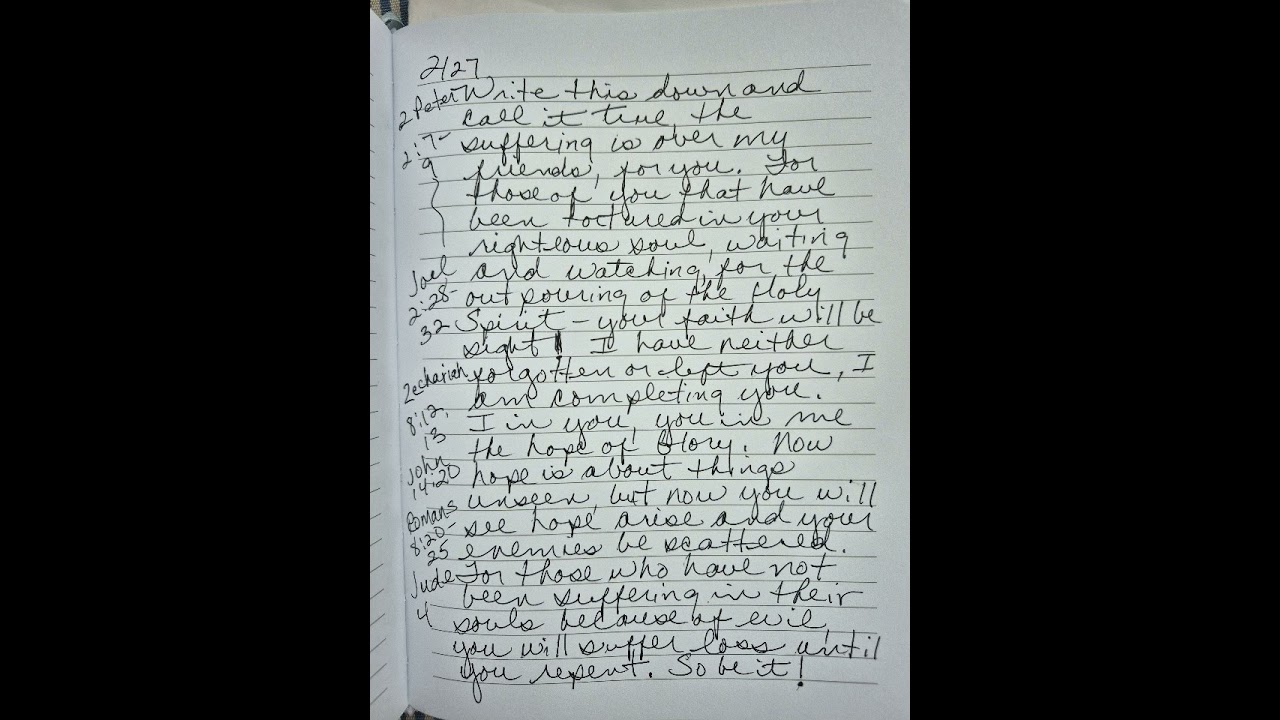 2/27
2 Peter Write this down and
call it true, the
2:7- suffering is over my
9 friends, for you. For
those of you that have
been tortured in your
righteous soul, waiting
Joel and watching, for the
2:28- out pouring of the Holy
32 Spirit - your faith will be
sight! I have neither
Zechariah forgotten or left you, I
am completing you.
8:12, I in you, you in me
13 the hope of Glory. Now
John hope is about things
14:20 unseen, but now you will
Romans see hope arise and your
8:20- enemies be scattered.
25 For those who have not
Jude been suffering in their
4 souls because of evil,
you will suffer loss until
you repent. So be it!